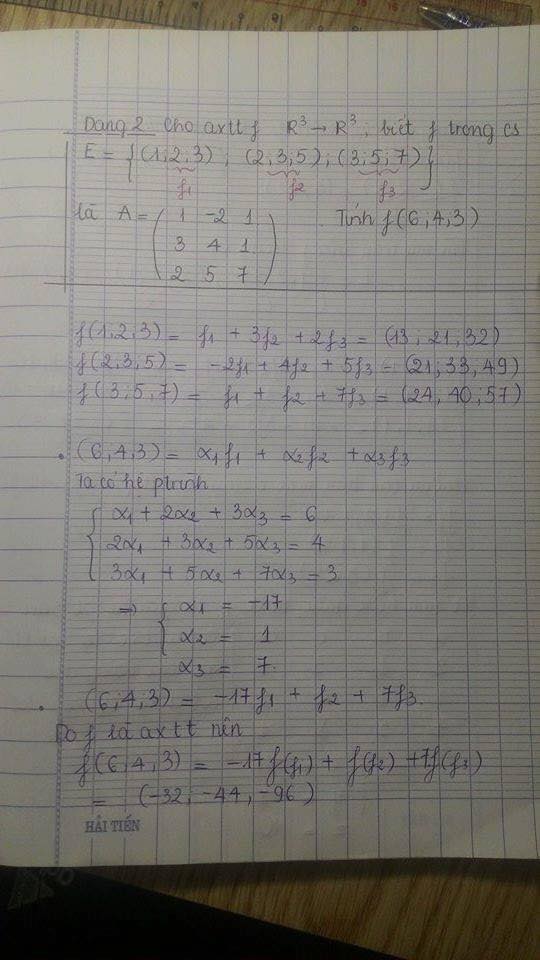 Dạng 2 Cho axtt f R³ → R³, biết f trong cs
E = {(1,2,3) ; (2;3;5) ; (3;5;7)}
f1 f2 f3
là A = ( 1 -2 1 Tính f(6;4;3)
3 4 1
2 5 7 )
f(1,2,3) = f1 + 3f2 + 2f3 = (13, 21, 32)
f(2,3,5) = -2f1 + 4f2 + 5f3 = (21; 33, 49)
f(3;5,7) = f1 + f2 + 7f3 = (24, 40; 57)
. (6,4,3) = α1f1 + α2f2 + α3f3
Ta có hệ ptrình
{ α1 + 2α2 + 3α3 = 6
2α1 + 3α2 + 5α3 = 4
3α1 + 5α2 + 7α3 = 3
⇒ { α1 = -17
α2 = 1
α3 = 7.
. (6,4,3) = -17f1 + f2 + 7f3.
Do f là axtt nên
f(6,4,3) = -17f(f1) + f(f2) + 7f(f3)
= (-32, -44, -96)
HẢI TIẾN